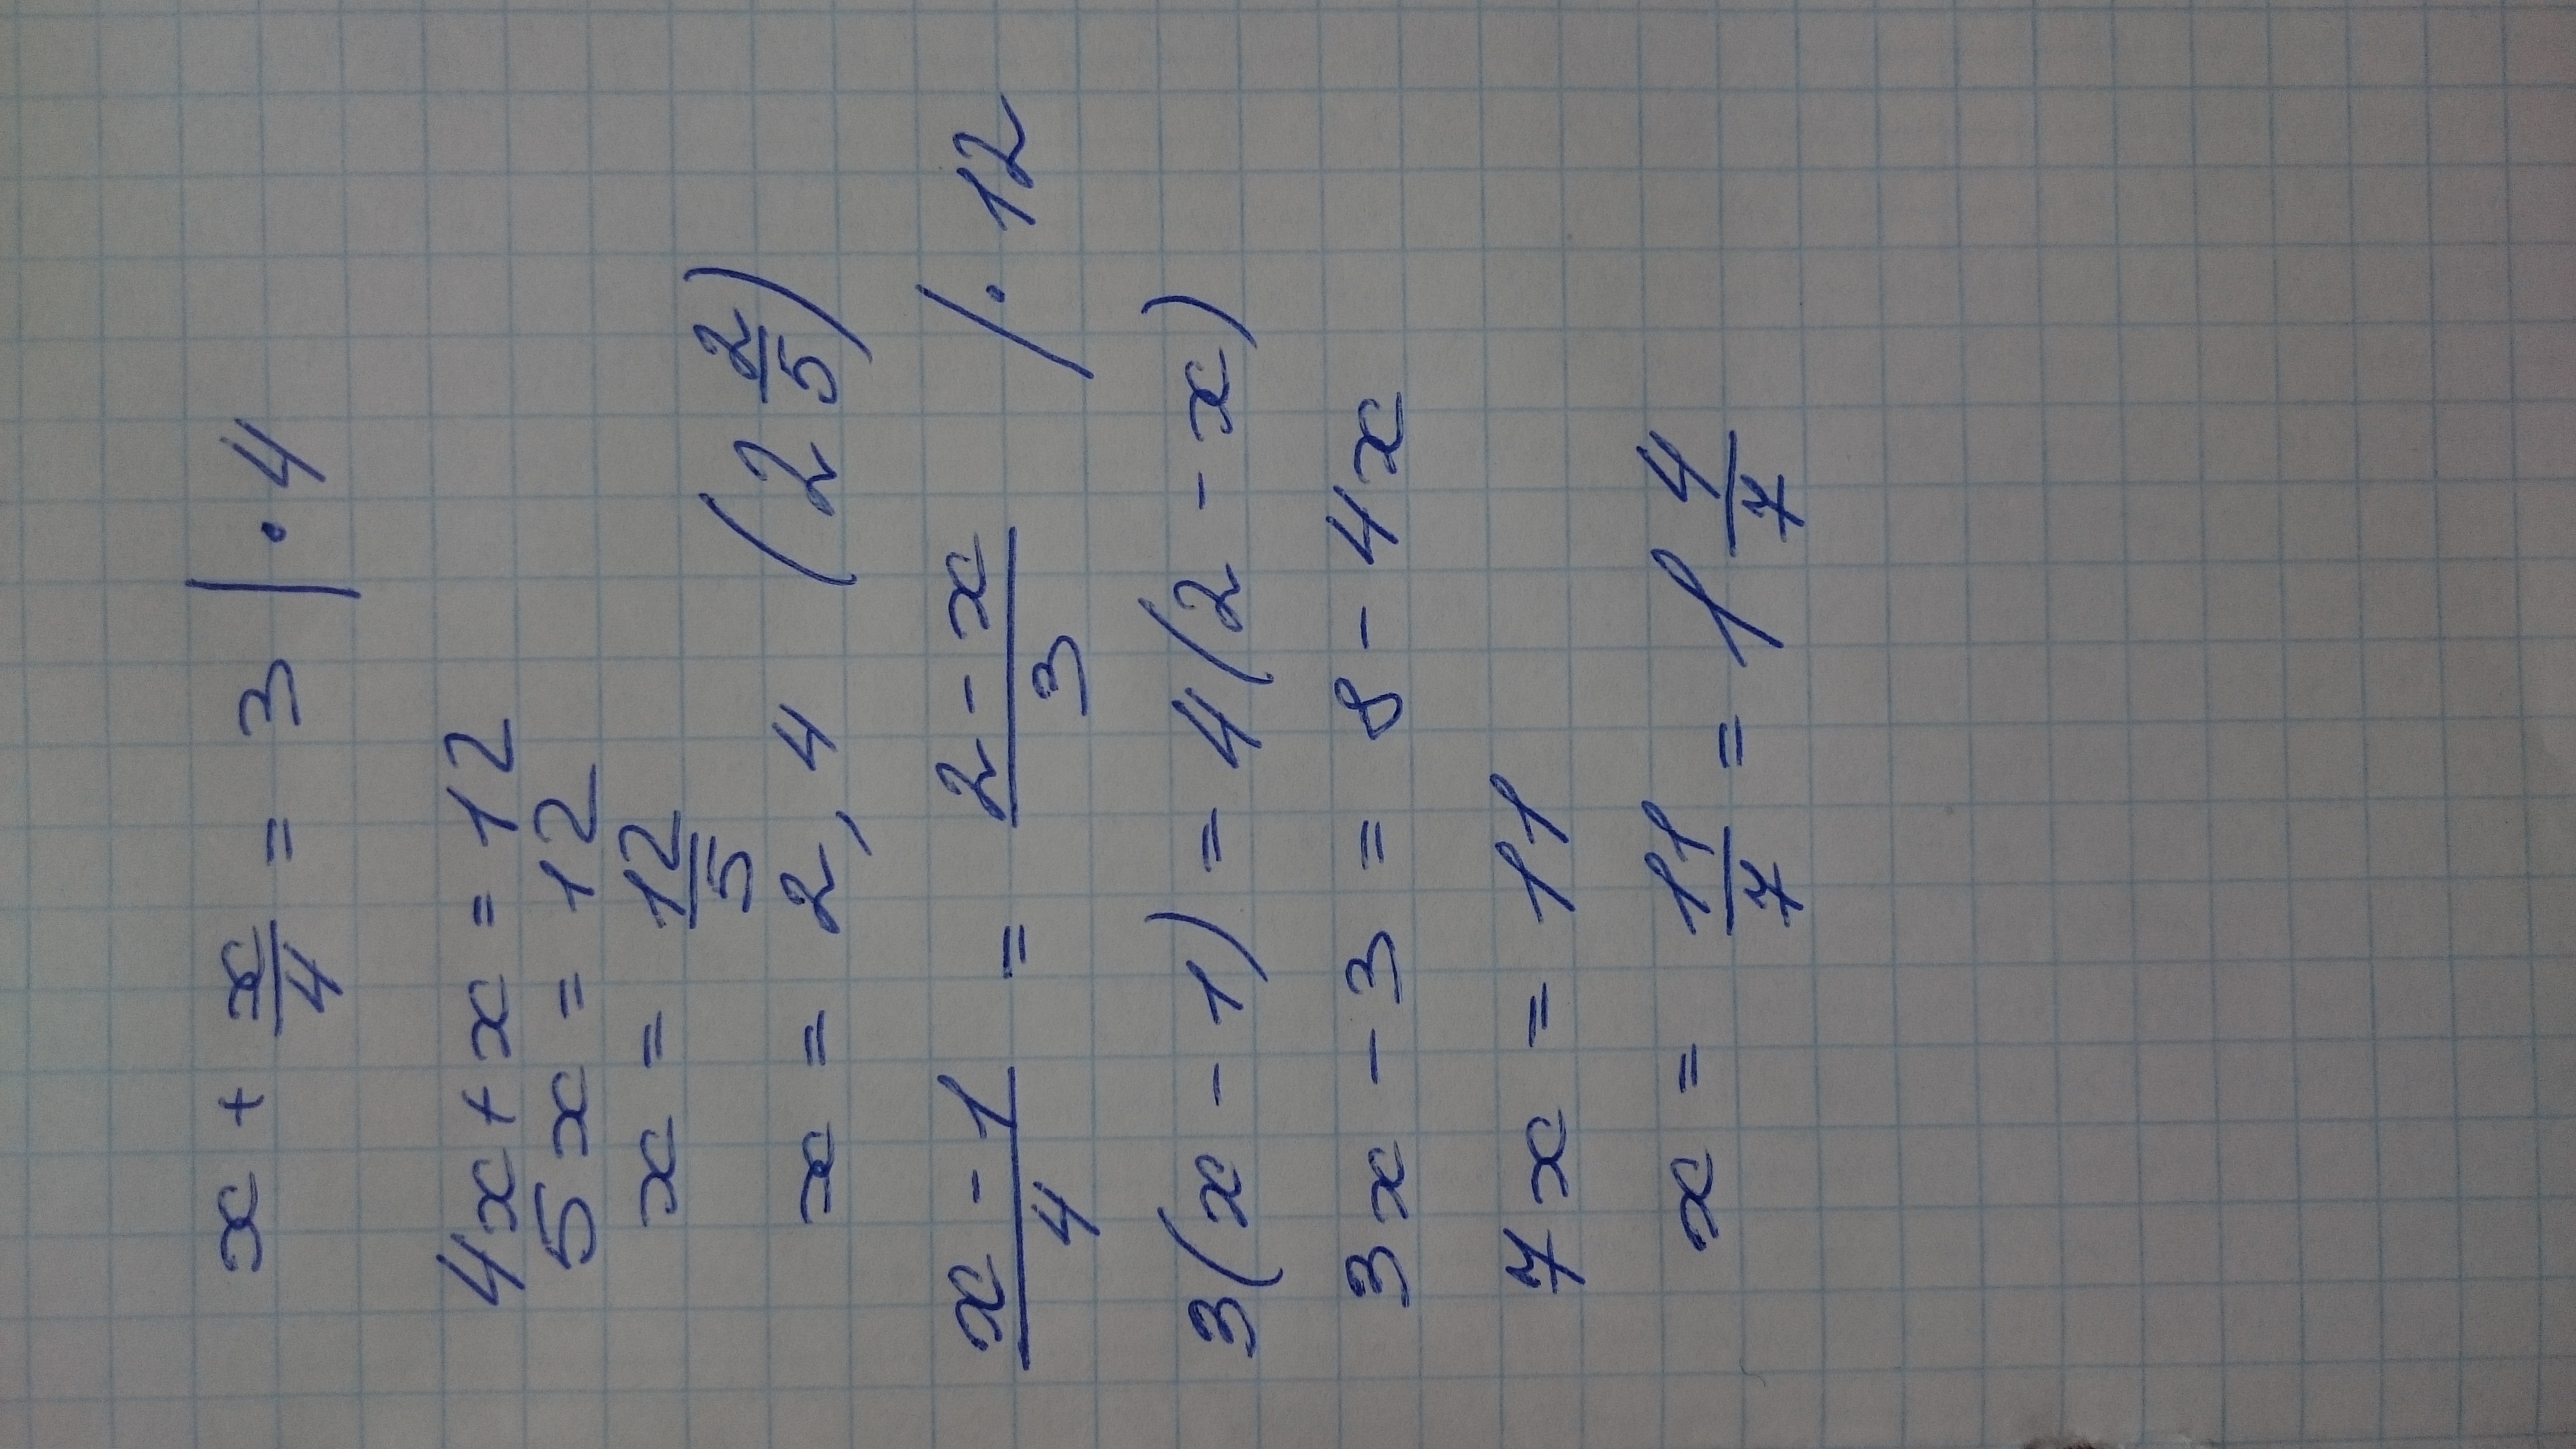 x + x/4 = 3 | · 4
4x + x = 12
5x = 12
x = 12/5
x = 2,4 (2 2/5)
x - 1/4 = 2 - x/3 / · 12
3(x - 1) = 4(2 - x)
3x - 3 = 8 - 4x
7x = 11
x = 11/7 = 1 4/7